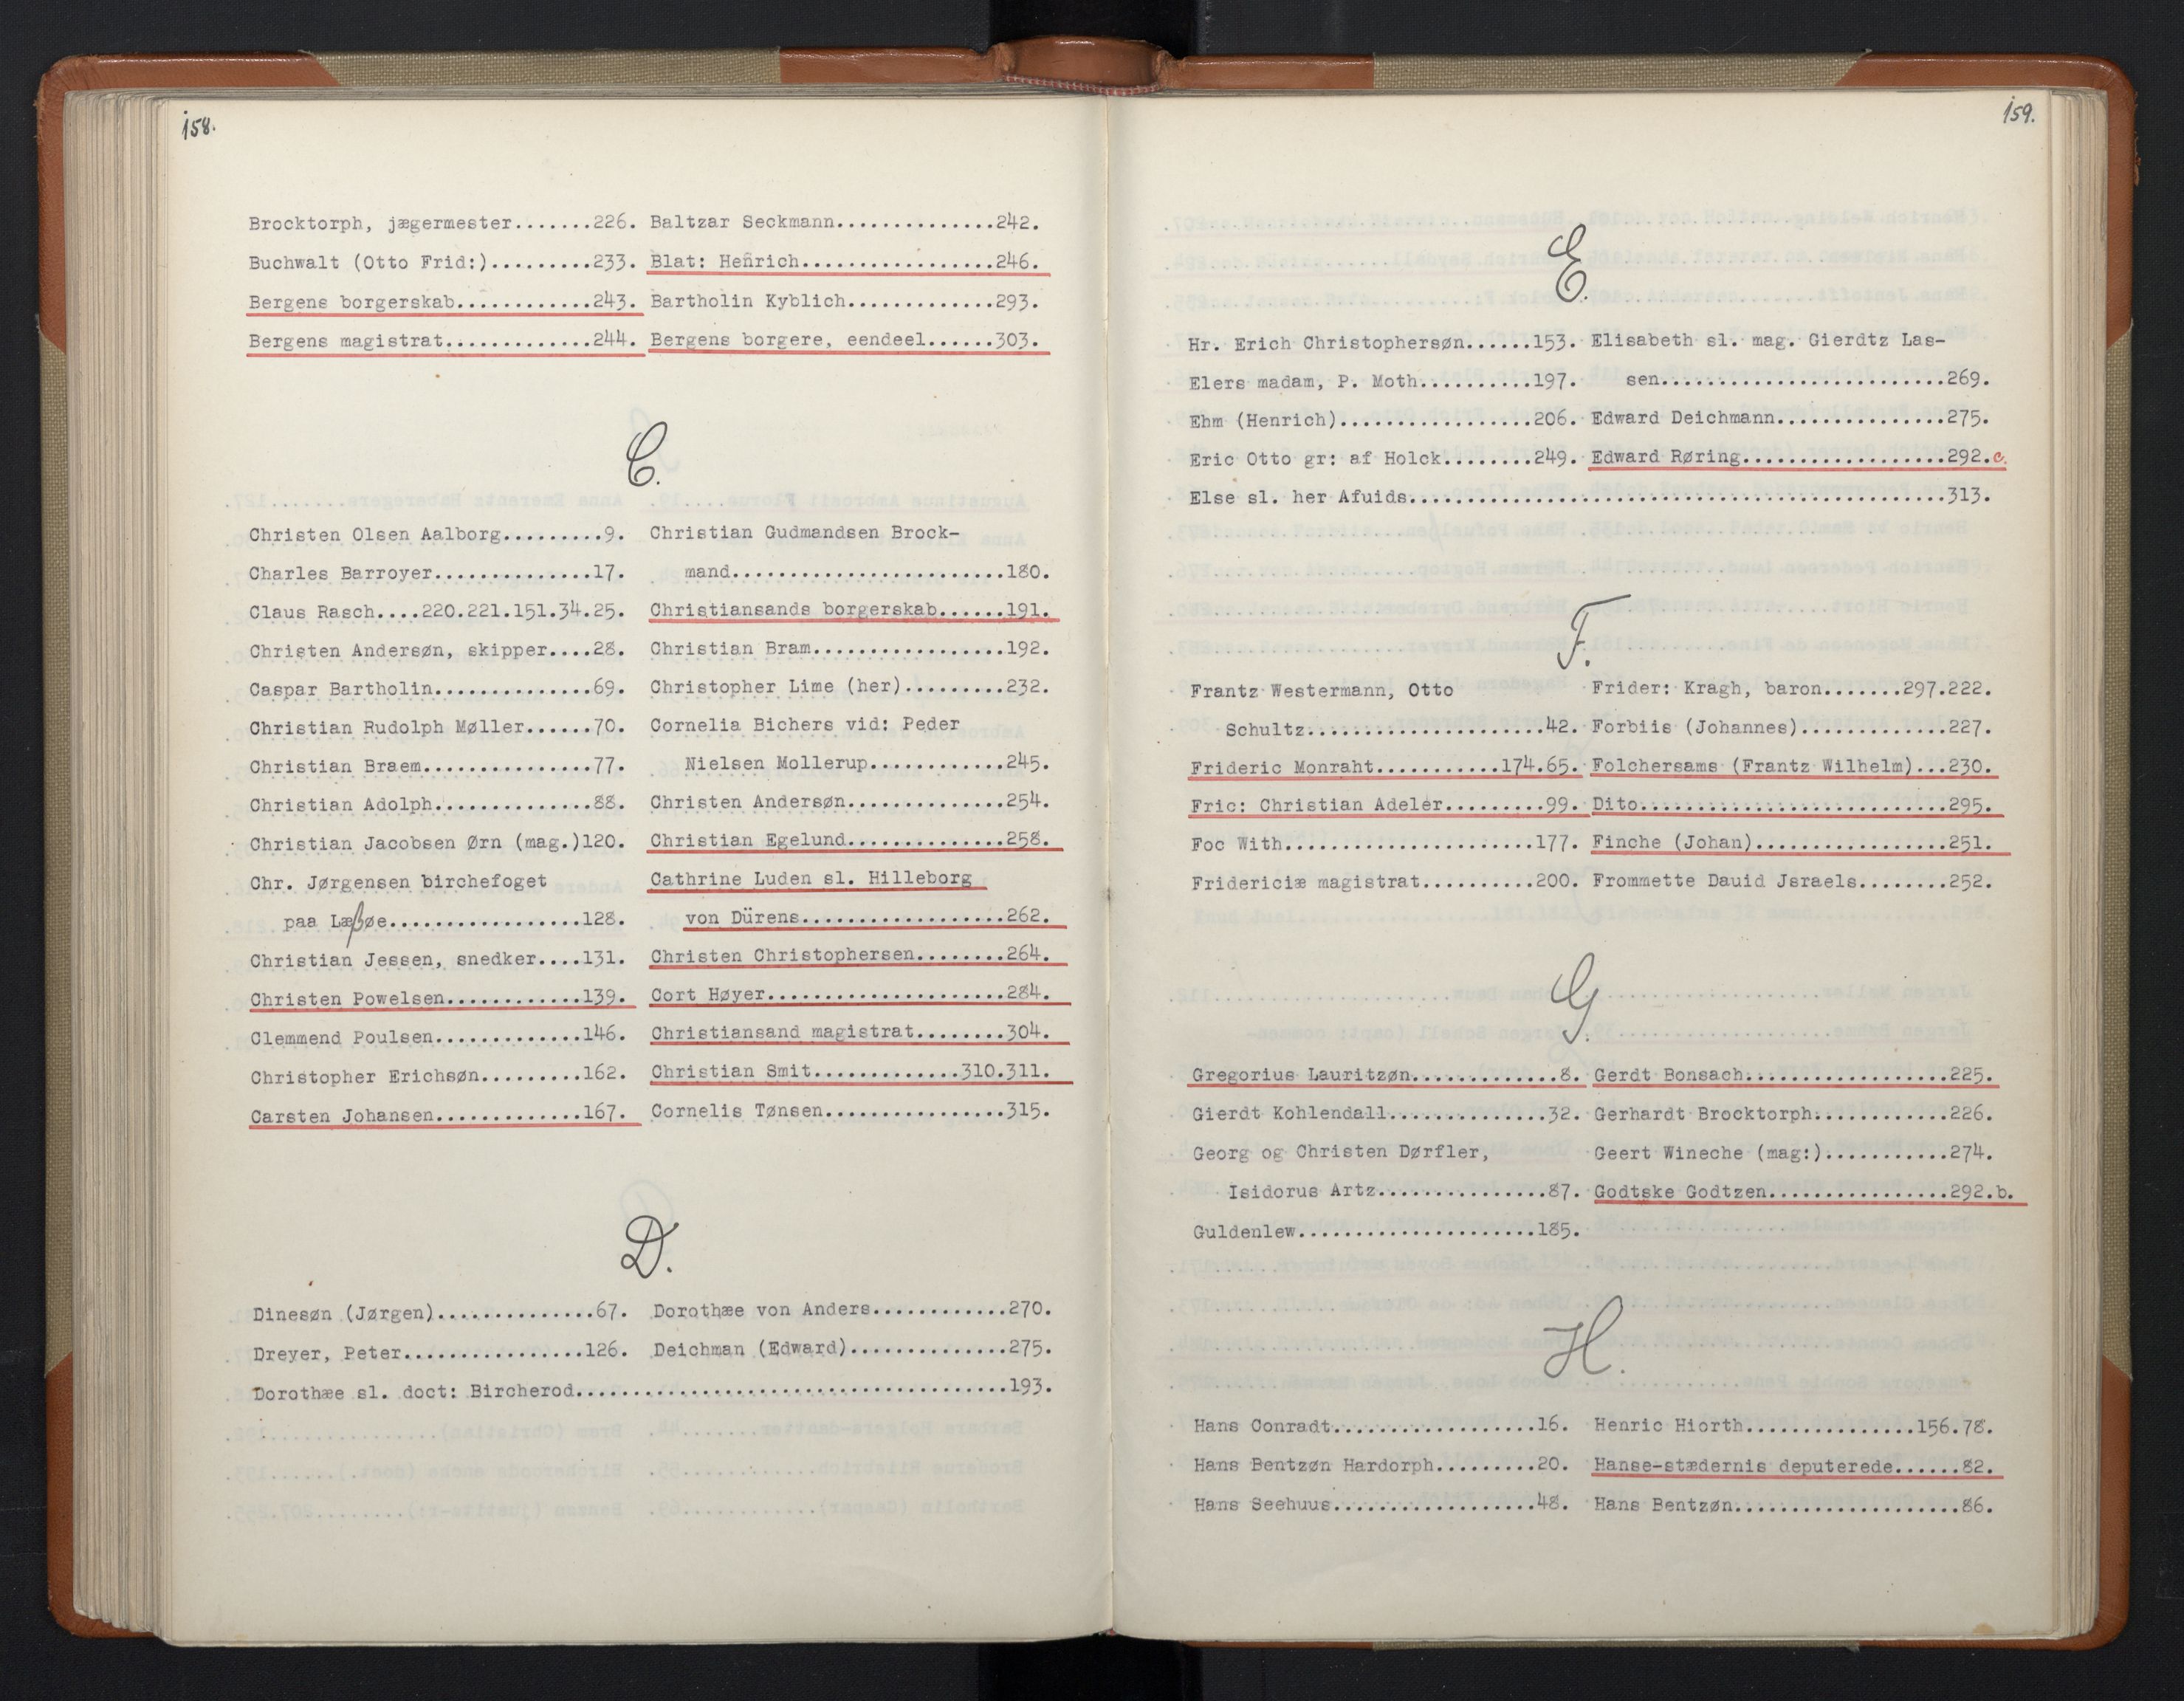 158.
Brocktorph, jægermester.......226.
Buchwalt (Otto Frid:).........233.
Bergens borgerskab............243.
Bergens magistrat.............244.
Baltzar Seckmann..............242.
Blat: Henrich.................246.
Bartholin Kyblich.............293.
Bergens borgere, eendeel......303.
C.
Christen Olsen Aalborg.........9.
Charles Barroyer..............17.
Claus Rasch....220.221.151.34.25.
Christen Andersøn, skipper....28.
Caspar Bartholin..............69.
Christian Rudolph Møller......70.
Christian Braem...............77.
Christian Adolph..............88.
Christian Jacobsen Ørn (mag.)120.
Chr. Jørgensen birchefoget
paa Læβøe.................128.
Christian Jessen, snedker....131.
Christen Powelsen............139.
Clemmend Poulsen.............146.
Christopher Erichsøn.........162.
Carsten Johansen.............167.
Christian Gudmandsen Brock-
mand........................180.
Christiansands borgerskab......191.
Christian Bram.................192.
Christopher Lime (her).........232.
Cornelia Bichers vid: Peder
Nielsen Mollerup............245.
Christen Andersøn..............254.
Christian Egelund..............258.
Cathrine Luden sl. Hilleborg
von Dürens..................262.
Christen Christophersen........264.
Cort Høyer.....................284.
Christiansand magistrat........304.
Christian Smit.............310.311.
Cornelis Tønsen................315.
D.
Dinesøn (Jørgen)..............67.
Dreyer, Peter................126.
Dorothæe von Anders............270.
Deichman (Edward)..............275.
Dorothæe sl. doct: Bircherod.......................................193.
159.
E.
Hr. Erich Christophersøn......153.
Elers madam, P. Moth..........197.
Ehm (Henrich).................206.
Eric Otto gr: af Holck........249.
Elisabeth sl. mag. Gierdtz Las-
sen.........................269.
Edward Deichmann...............275.
Edward Røring..................292.c.
Else sl. her Afuids................................................313.
F.
Frantz Westermann, Otto
Schultz.....................42.
Frideric Monraht...........174.65.
Fric: Christian Adeler.........99.
Foc With......................177.
Fridericiæ magistrat..........200.
Frider: Kragh, baron.......297.222.
Forbiis (Johannes).............227.
Folchersams (Frantz Wilhelm)...230.
Dito...........................295.
Finche (Johan).................251.
Frommette Dauid Jsraels........252.
G.
Gregorius Lauritzøn.............8.
Gierdt Kohlendall..............32.
Georg og Christen Dørfler,
Isidorus Artz...............87.
Guldenlew.....................185.
Gerdt Bonsach..................225.
Gerhardt Brocktorph............226.
Geert Wineche (mag:)...........274.
Godtske Godtzen................292.b.
H.
Hans Conradt..................16.
Hans Bentzøn Hardorph.........20.
Hans Seehuus..................48.
Henric Hiorth...............156.78.
Hanse-stædernis deputerede......82.
Hans Bentzøn....................86.